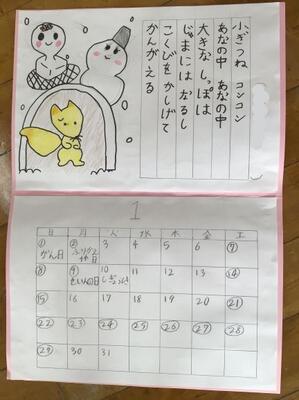 小ぎつね コンコン
あなの中 あなの中
大きな しっぽは
じゃまには なるし
こくびを かしげて
かんがえる
1
日 月 火 水 木 金 土
① ② 3 4 5 6 ⑦
がん日 ふりかえ休日
⑧ ⑨ 10 11 12 13 ⑭
せい人の日
⑮ 16 17 18 19 20 ㉑
㉒ ㉓ ㉔ ㉕ ㉖ ㉗ ㉘
㉙ 30 31